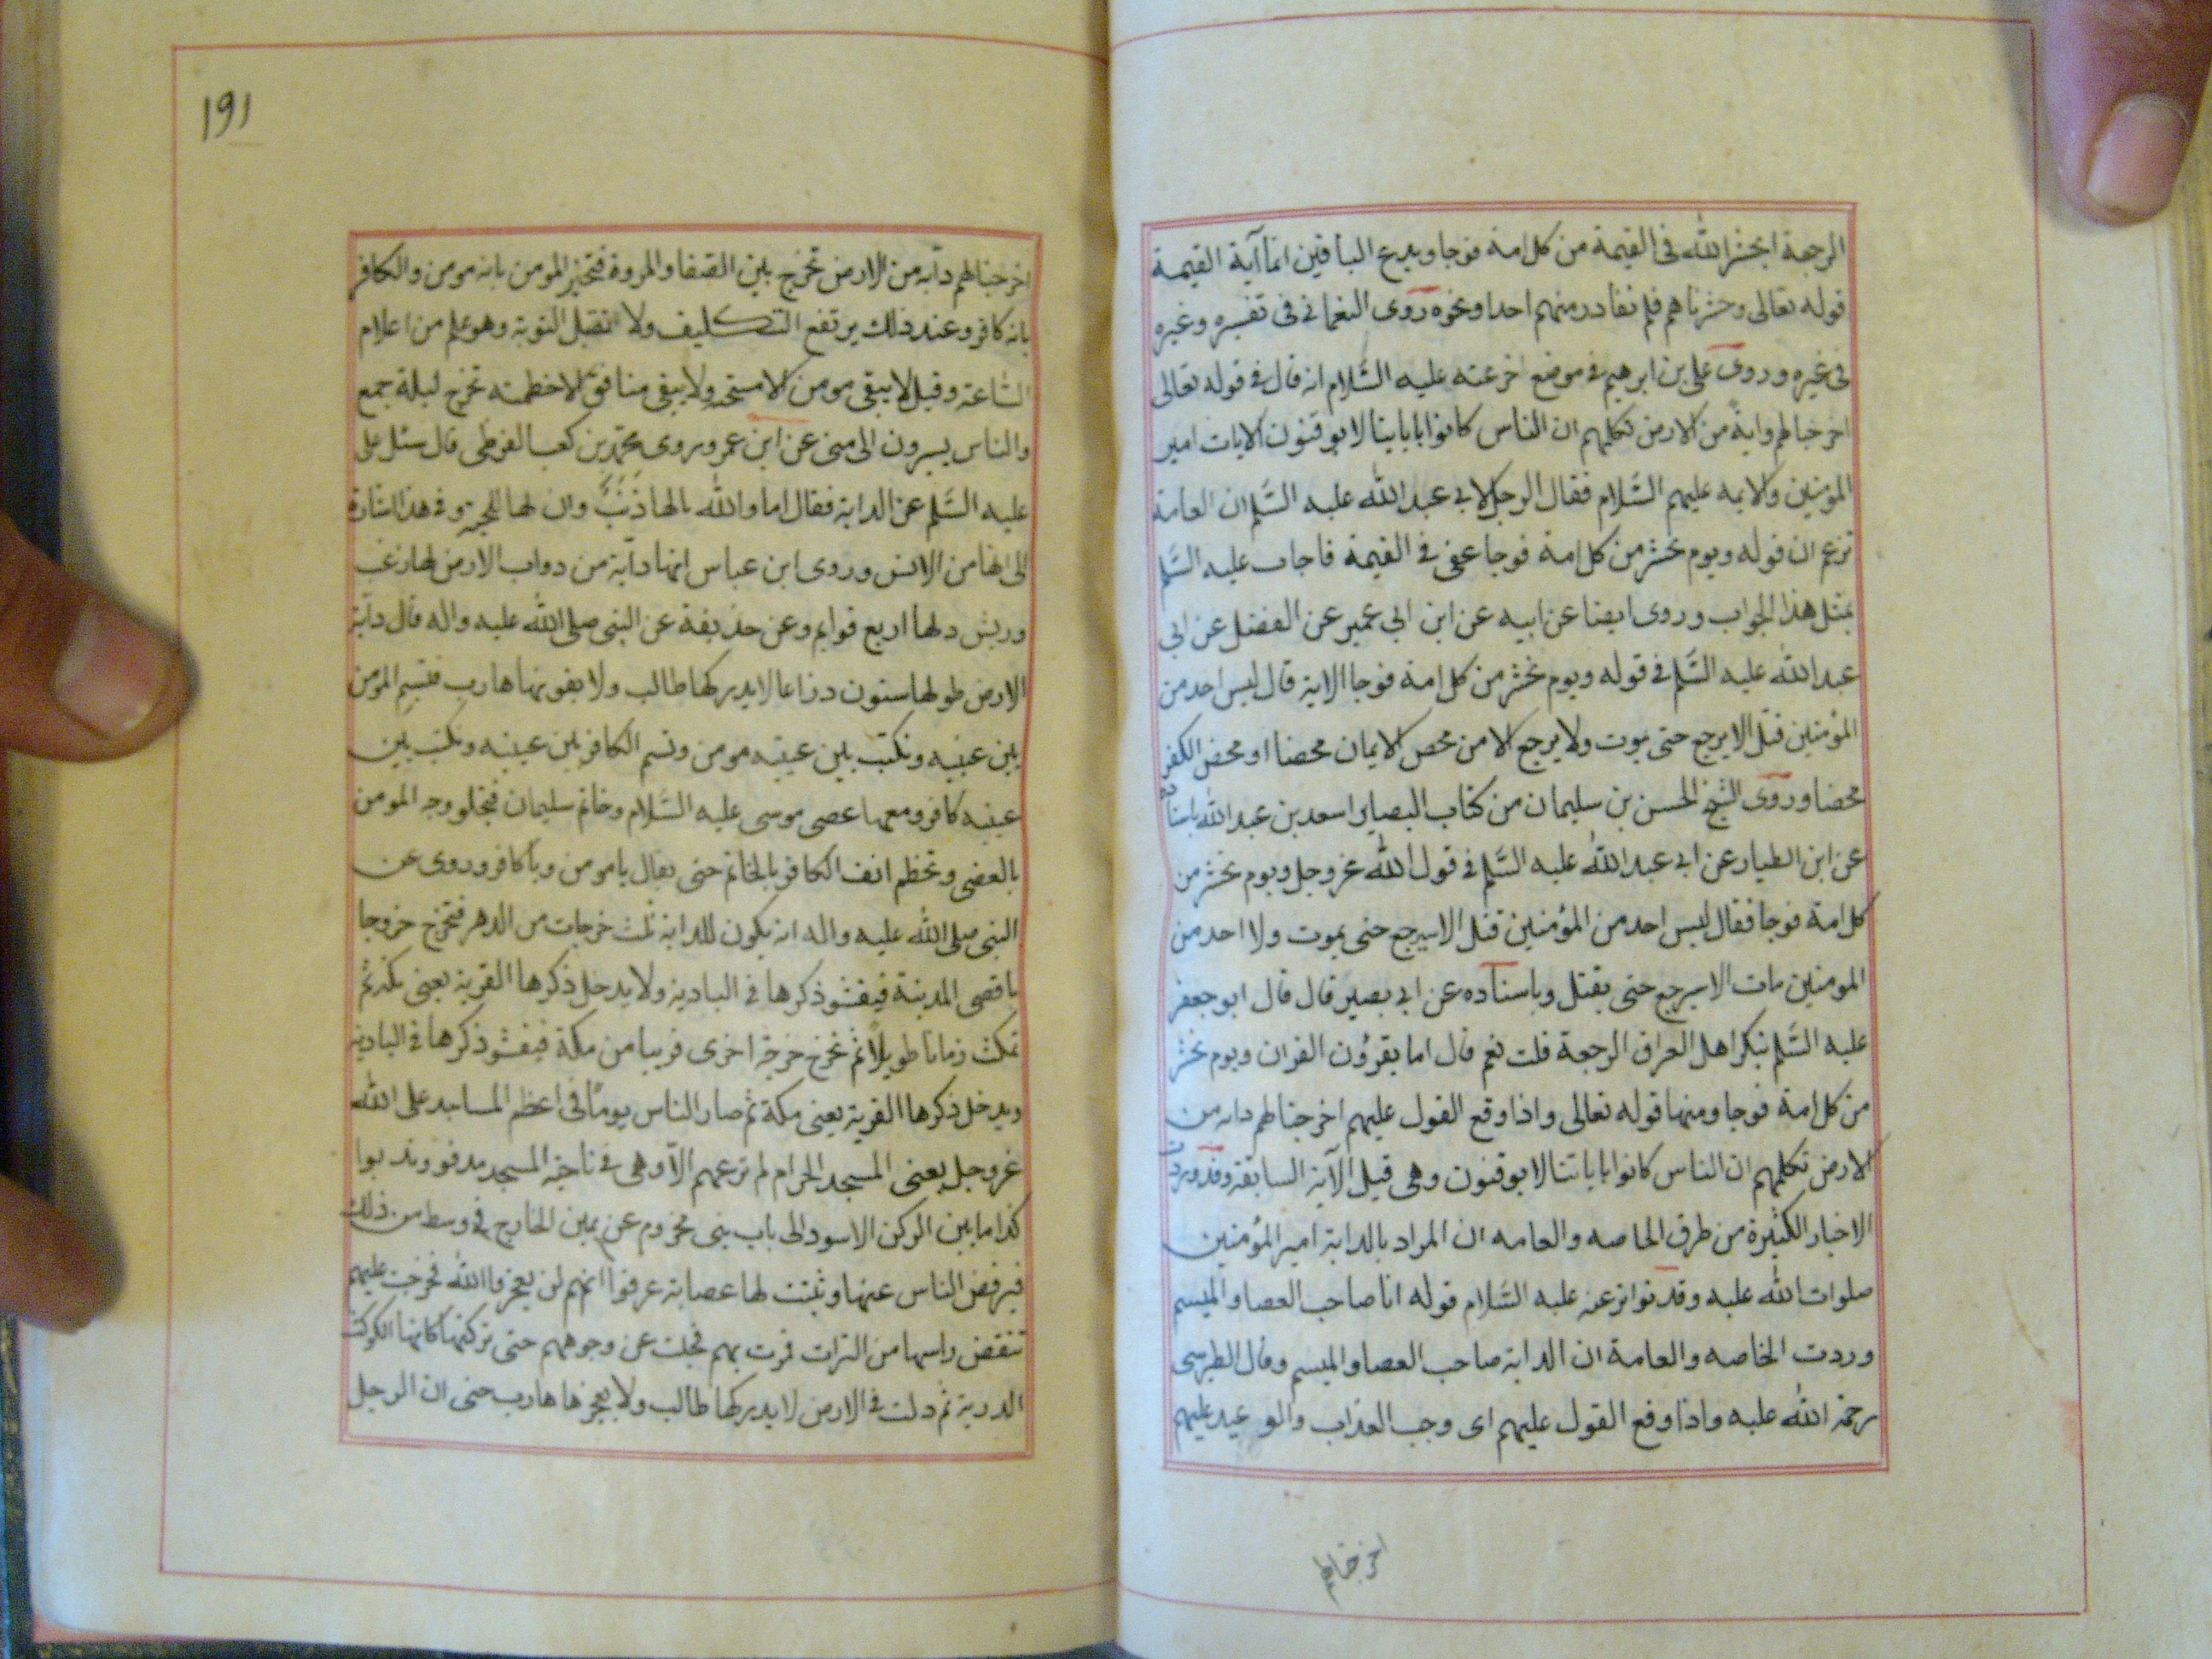 الرجعة ايحشر الله فى القيمة من كل امة فوجا ويدع الباقين انما آية القيمة
قوله تعالى وحشرناهم فلم نغادر منهم احدا ونحوه روى النعمانى فى تفسيره وغيره
فى غيره وروى على بن ابرهيم فى موضع اخر عنه عليه السلام انه قال فى قوله تعالى
اخرجنا لهم دابة من الارض تكلمهم ان الناس كانوا باياتنا لا يوقنون الايات امير
المؤمنين والايمه عليهم السلام فقال الرجل لابى عبد الله عليه السلم ان العامة
تزعم ان قوله ويوم نحشر من كل امة فوجا عنى فى القيمة فاجاب عليه السلم
بمثل هذا الجواب وروى ايضا عن ابيه عن ابن ابى عمير عن المفضل عن ابى
عبد الله عليه السلم فى قوله ويوم نحشر من كل امة فوجا الاية قال ليس احد من
المؤمنين قتل الا يرجع حتى يموت ولا يرجع الا من محص الايمان محضا او محض الكفر
محضا وروى الشيخ الحسن بن سليمان من كتاب البصاير اسعد بن عبد الله باسناده
عن ابن الطيار عن ابى عبد الله عليه السلم فى قول الله عز وجل ويوم نحشر من
كل امة فوجا فقال ليس احد من المؤمنين قتل الا سيرجع حتى يموت ولا احد من
المومنين مات الا سيرجع حتى يقتل وباسناده عن ابى بصير قال قال ابو جعفر
عليه السلم ينكر اهل العراق الرجعة قلت نعم قال اما يقرؤن القران ويوم نحشر
من كل امة فوجا ومنها قوله تعالى واذا وقع القول عليهم اخرجنا لهم دابه من
الارض تكلمهم ان الناس كانوا باياتنا لا يوقنون وهى قبل الآية السابقة وقد وردت
الاخبار الكثيرة من طرق الخاصه والعامه ان المراد بالدابة امير المؤمنين
صلوات الله عليه وقد تواتر عنه عليه السلام قوله انا صاحب العصا والميسم
وردت الخاصه والعامة ان الدابة صاحب العصا والميسم وقال الطبرسى
رحمة الله عليه واذا وقع القول عليهم اى وجب العذاب والوعيد عليهم
اخرجنا لهم
١٩١
اخرجنا لهم دآبه من الارض تخرج بين الصفا والمروة فتخبر المومن بانه مومن والكافر
بانه كافر وعند ذلك يرتفع التكليف ولا تقبل التوبة وهو علم من اعلام
الساعة وقيل لا يبقى مومن الا مستحة ولا يبقى منافق الا خطمته تخرج ليلة جمع
والناس يسيرون الى منى عن ابن عمر وروى محمد بن كعب القرظى قال سئل على
عليه السلم عن الدابة فقال اما والله مالها ذَنَبٌ وان لها للحية وفى هذا اشارة
الى انها من الانس وروى ابن عباس انها دآبة من دواب الارض لها زغب
وريش ولها اربع قوايم وعن حذيفة عن النبى صلى الله عليه واله قال دآبة
الارض طولها ستون ذراعا لا يدركها طالب ولا يفوتها هارب فتسم المؤمن
بين عينيه وتكتب بين عينيه مومن وتسم الكافر بين عينيه وتكتب بين
عينيه كافر ومعها عصى موسى عليه السلام وخاتم سليمان فتجلو وجه المومن
بالعصى وتخطم انف الكافر بالخاتم حتى يقال يا مومن ويا كافر وروى عن
النبى صلى الله عليه واله انه يكون للدابة ثلث خرجات من الدهر فتخرج خروجا
باقصى المدينة فيفشو ذكرها فى البادية ولا يدخل ذكرها القرية يعنى مكة ثم
تمكث زمانا طويلاً ثم تخرج خرجة اخرى قريبا من مكة فيفشو ذكرها فى البادية
ويدخل ذكرها القرية يعنى مكة ثم صار الناس يوماً فى اعظم المساجد على الله
عز وجل يعنى المسجد الحرام لم ترعهم الا وهى فى ناحية المسجد
كذا ما بين الركن الاسود الى باب بنى مخزوم عن يمين الخارج فى وسط من ذلك
فيرفض الناس عنها وتثبت لها عصابة عرفوا انهم لن يعجزوا الله فخرجت عليهم
تنفض راسها من التراب فمرت بهم فجلت عن وجوههم حتى تركتها كانها الكوكب
الدرية ثم دلت فى الارض لا يدركها طالب ولا يعجزها هارب حتى ان الرجل